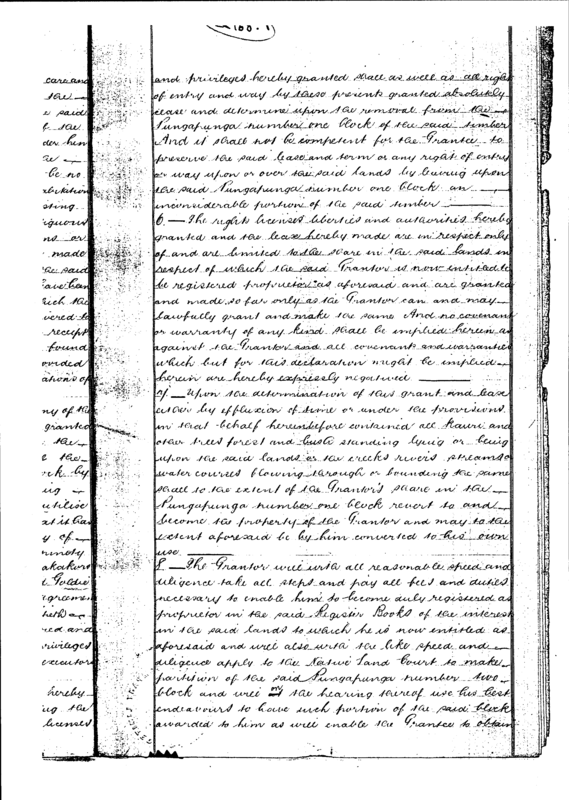 care and
the
e said
& the
der him
be no
sting
iguous
ns or
made
he said
rich the
vered to
receipt
found
ovided
ations of
ny of the
granted
the
& the
rk by
ug
utilise
at it has
y of
ninety
akakuro
& Goldie
agreement
red and
privileges
executors
hereby
ug the
licenses
and privileges hereby granted shall as well as all right
of entry and way by these presents granted absolutely
cease and determine upon the removal from the
Pungapunga number one block of the said timber
And it shall not be competent for the Grantee to
preserve the said lease and term or any right of entry
or way upon or over the said lands by leaving upon
the said Pungapunga number one block an
inconsiderable portion of the said timber
6. — The rights licenses liberties and authorities hereby
granted and the lease hereby made are in respect only
of and are limited to the share in the said lands in
respect of which the said Grantor is now entitled to
be registered proprietor as aforesaid and are granted
and made so far only as the Grantor can and may
lawfully grant and make the same And no covenant
or warranty of any kind shall be implied herein as
against the Grantor and all covenants and warranties
which but for this declaration might be implied
herein are hereby expressly negatived
7. — Upon the determination of this grant and lease
either by effluxion of time or under the provisions
in that behalf hereinbefore contained all Kauri and
other trees forest and bush standing lying or being
upon the said lands or the creeks rivers streams or
water courses flowing through or bounding the same
shall to the extent of the Grantor's share in the
Pungapunga number one block revert to and
become the property of the Grantor and may to the
extent aforesaid be by him converted to his own
use
8. — The Grantor will with all reasonable speed and
diligence take all steps and pay all fees and duties
necessary to enable him to become duly registered as
proprietor in the said Register Books of the interest
in the said lands to which he is now entitled as
aforesaid and will also with the like speed and
diligence apply to the Native Land Court to make
partition of the said Pungapunga number two
block and will on the hearing thereof use his best
endeavours to have such portion of the said block
awarded to him as will enable the Grantee to obtain